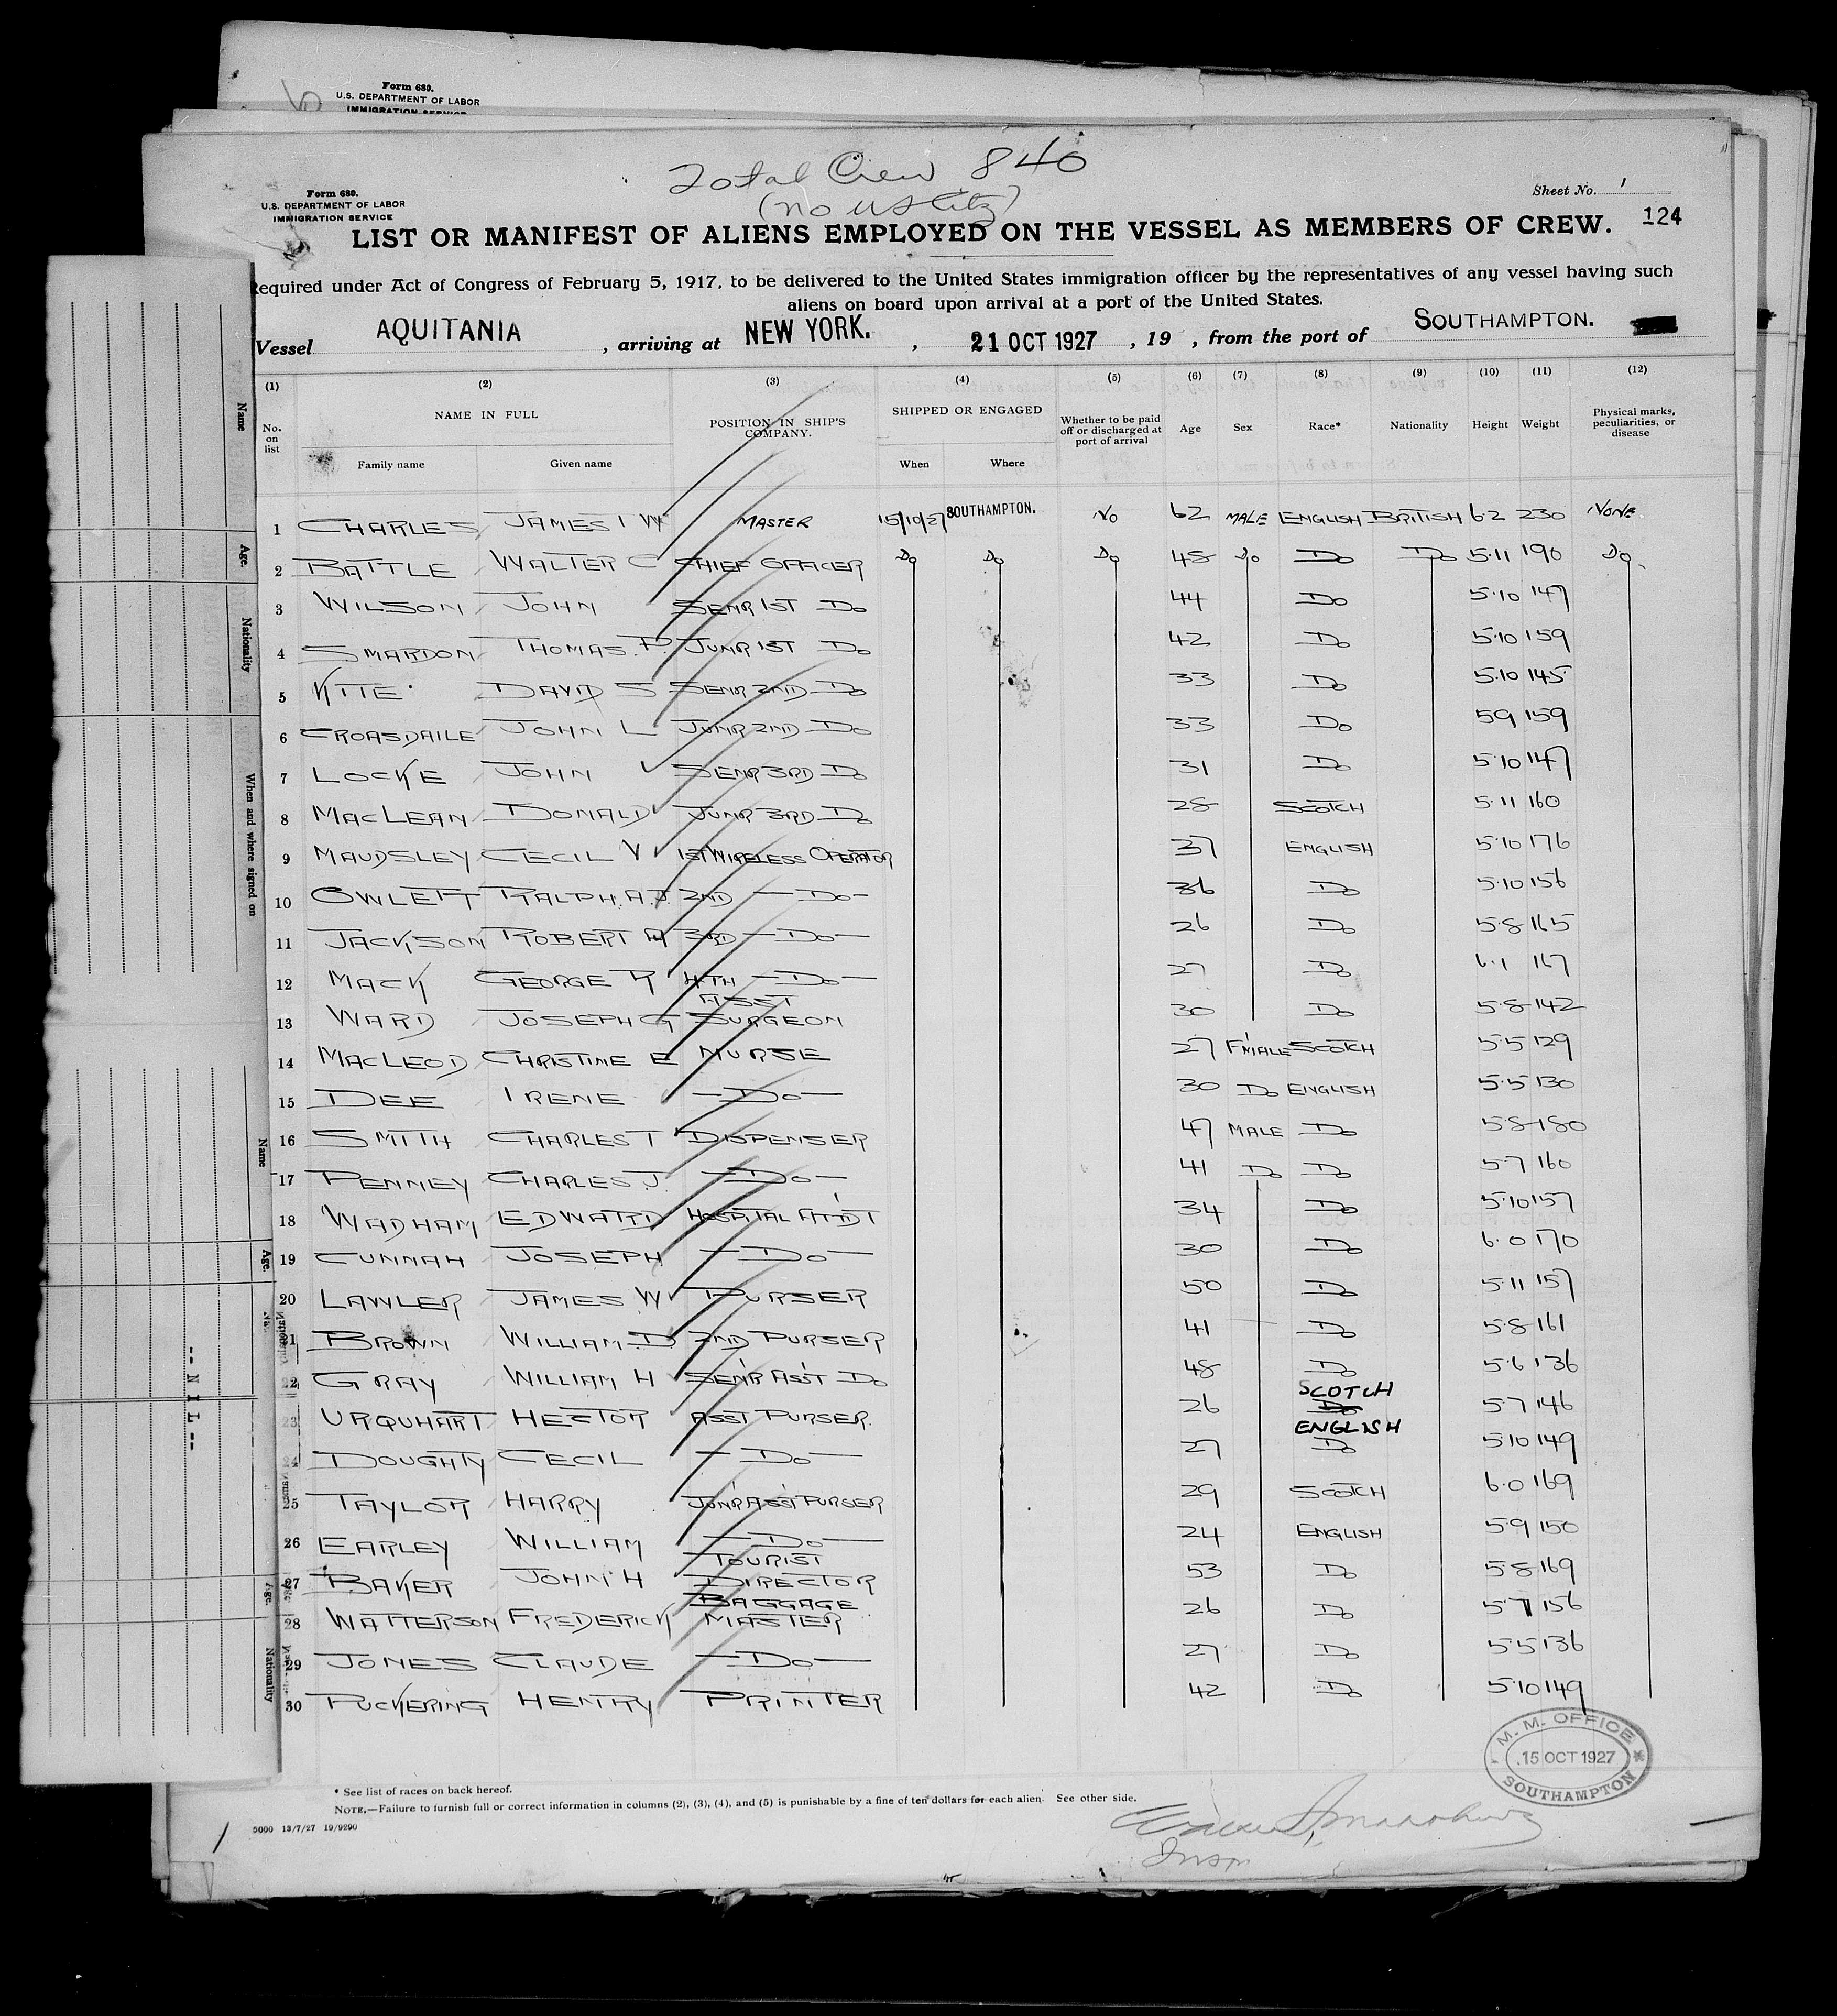 Form 680.
U.S. DEPARTMENT OF LABOR
IMMIGRATION SERVICE
Total Crew 840
(no US Citz)
Form 680.
U.S. DEPARTMENT OF LABOR
IMMIGRATION SERVICE
Sheet No. 1
124
LIST OR MANIFEST OF ALIENS EMPLOYED ON THE VESSEL AS MEMBERS OF CREW.
Required under Act of Congress of February 5, 1917, to be delivered to the United States immigration officer by the representatives of any vessel having such
aliens on board upon arrival at a port of the United States.
Vessel AQUITANIA, arriving at NEW YORK., 21 OCT 1927, 19 , from the port of SOUTHAMPTON.
(1) (2) (3) (4) (5) (6) (7) (8) (9) (10) (11) (12)
No. on list NAME IN FULL Family name Given name POSITION IN SHIP'S COMPANY. SHIPPED OR ENGAGED When Where Whether to be paid off or discharged at port of arrival Age Sex Race* Nationality Height Weight Physical marks, peculiarities, or disease
1 CHARLES JAMES T W MASTER 15/10/27 SOUTHAMPTON. NO 62 MALE ENGLISH BRITISH 6·2 230 NONE
2 BATTLE WALTER C CHIEF OFFICER Do Do Do 48 Do Do Do 5·11 190 Do
3 WILSON JOHN SENR 1ST Do 44 Do 5·10 147
4 SMARDON THOMAS. P. JUNR 1ST Do 42 Do 5·10 159
5 KITE DAVID S SENR 2ND Do 33 Do 5·10 145
6 CROASDAILE JOHN L JUNR 2ND Do 33 Do 5 9 159
7 LOCKE JOHN SENR 3RD Do 31 Do 5·10 147
8 MACLEAN DONALD JUNR 3RD Do 28 SCOTCH 5·11 160
9 MAUDSLEY CECIL V 1ST WIRELESS OPERATOR 37 ENGLISH 5·10 176
10 OWLETT RALPH. A. J. 2ND — Do — 36 Do 5·10 156
11 JACKSON ROBERT H 3RD — Do — 26 Do 5·8 165
12 MACK GEORGE R 4TH — Do — 27 Do 6·1 167
13 WARD JOSEPH G ASST SURGEON 30 Do 5·8 142
14 MACLEOD CHRISTINE E NURSE 27 F'MALE SCOTCH 5·5 129
15 DEE IRENE — Do — 30 Do ENGLISH 5·5 130
16 SMITH CHARLES T DISPENSER 47 MALE Do 5·8 180
17 PENNEY CHARLES J. — Do — 41 Do Do 5·7 160
18 WADHAM EDWARD HOSPITAL ATT'D'T 34 Do 5·10 157
19 CUNNAH JOSEPH — Do — 30 Do 6·0 170
20 LAWLER JAMES W PURSER 50 Do 5·11 157
21 BROWN WILLIAM. D 2ND PURSER 41 Do 5·8 161
22 GRAY WILLIAM H SEN'R ASS'T Do 48 Do 5·6 136
23 URQUHART HECTOR ASST PURSER. 26 SCOTCH Do 5·7 146
24 DOUGHTY CECIL — Do — 27 ENGLISH Do 5·10 149
25 TAYLOR HARRY JUN'R ASS'T PURSER 29 SCOTCH 6·0 169
26 EARLEY WILLIAM — Do — 24 ENGLISH 5·9 150
27 BAKER JOHN H TOURIST DIRECTOR 53 Do 5·8 169
28 WATTERSON FREDERICK BAGGAGE MASTER 26 Do 5·7 156
29 JONES CLAUDE — Do — 27 Do 5·5 136
30 PUCKERING HENRY PRINTER 42 Do 5·10 149
M. M. OFFICE
15 OCT 1927
SOUTHAMPTON
* See list of races on back hereof.
NOTE.—Failure to furnish full or correct information in columns (2), (3), (4), and (5) is punishable by a fine of ten dollars for each alien. See other side.
5000 13/7/27 19/9290
Name
Age.
Nationality
When and where signed on
Name
Age.
-- N I L --
Age.
Nationality